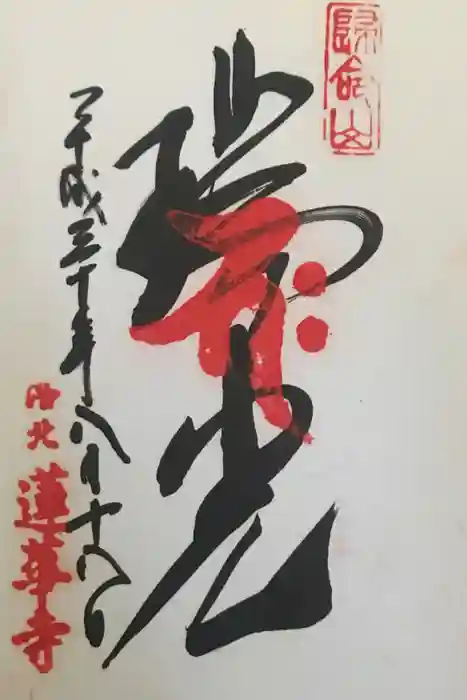 歸命山
瑞光
平成三十年八月十八日
洛北
蓮華寺